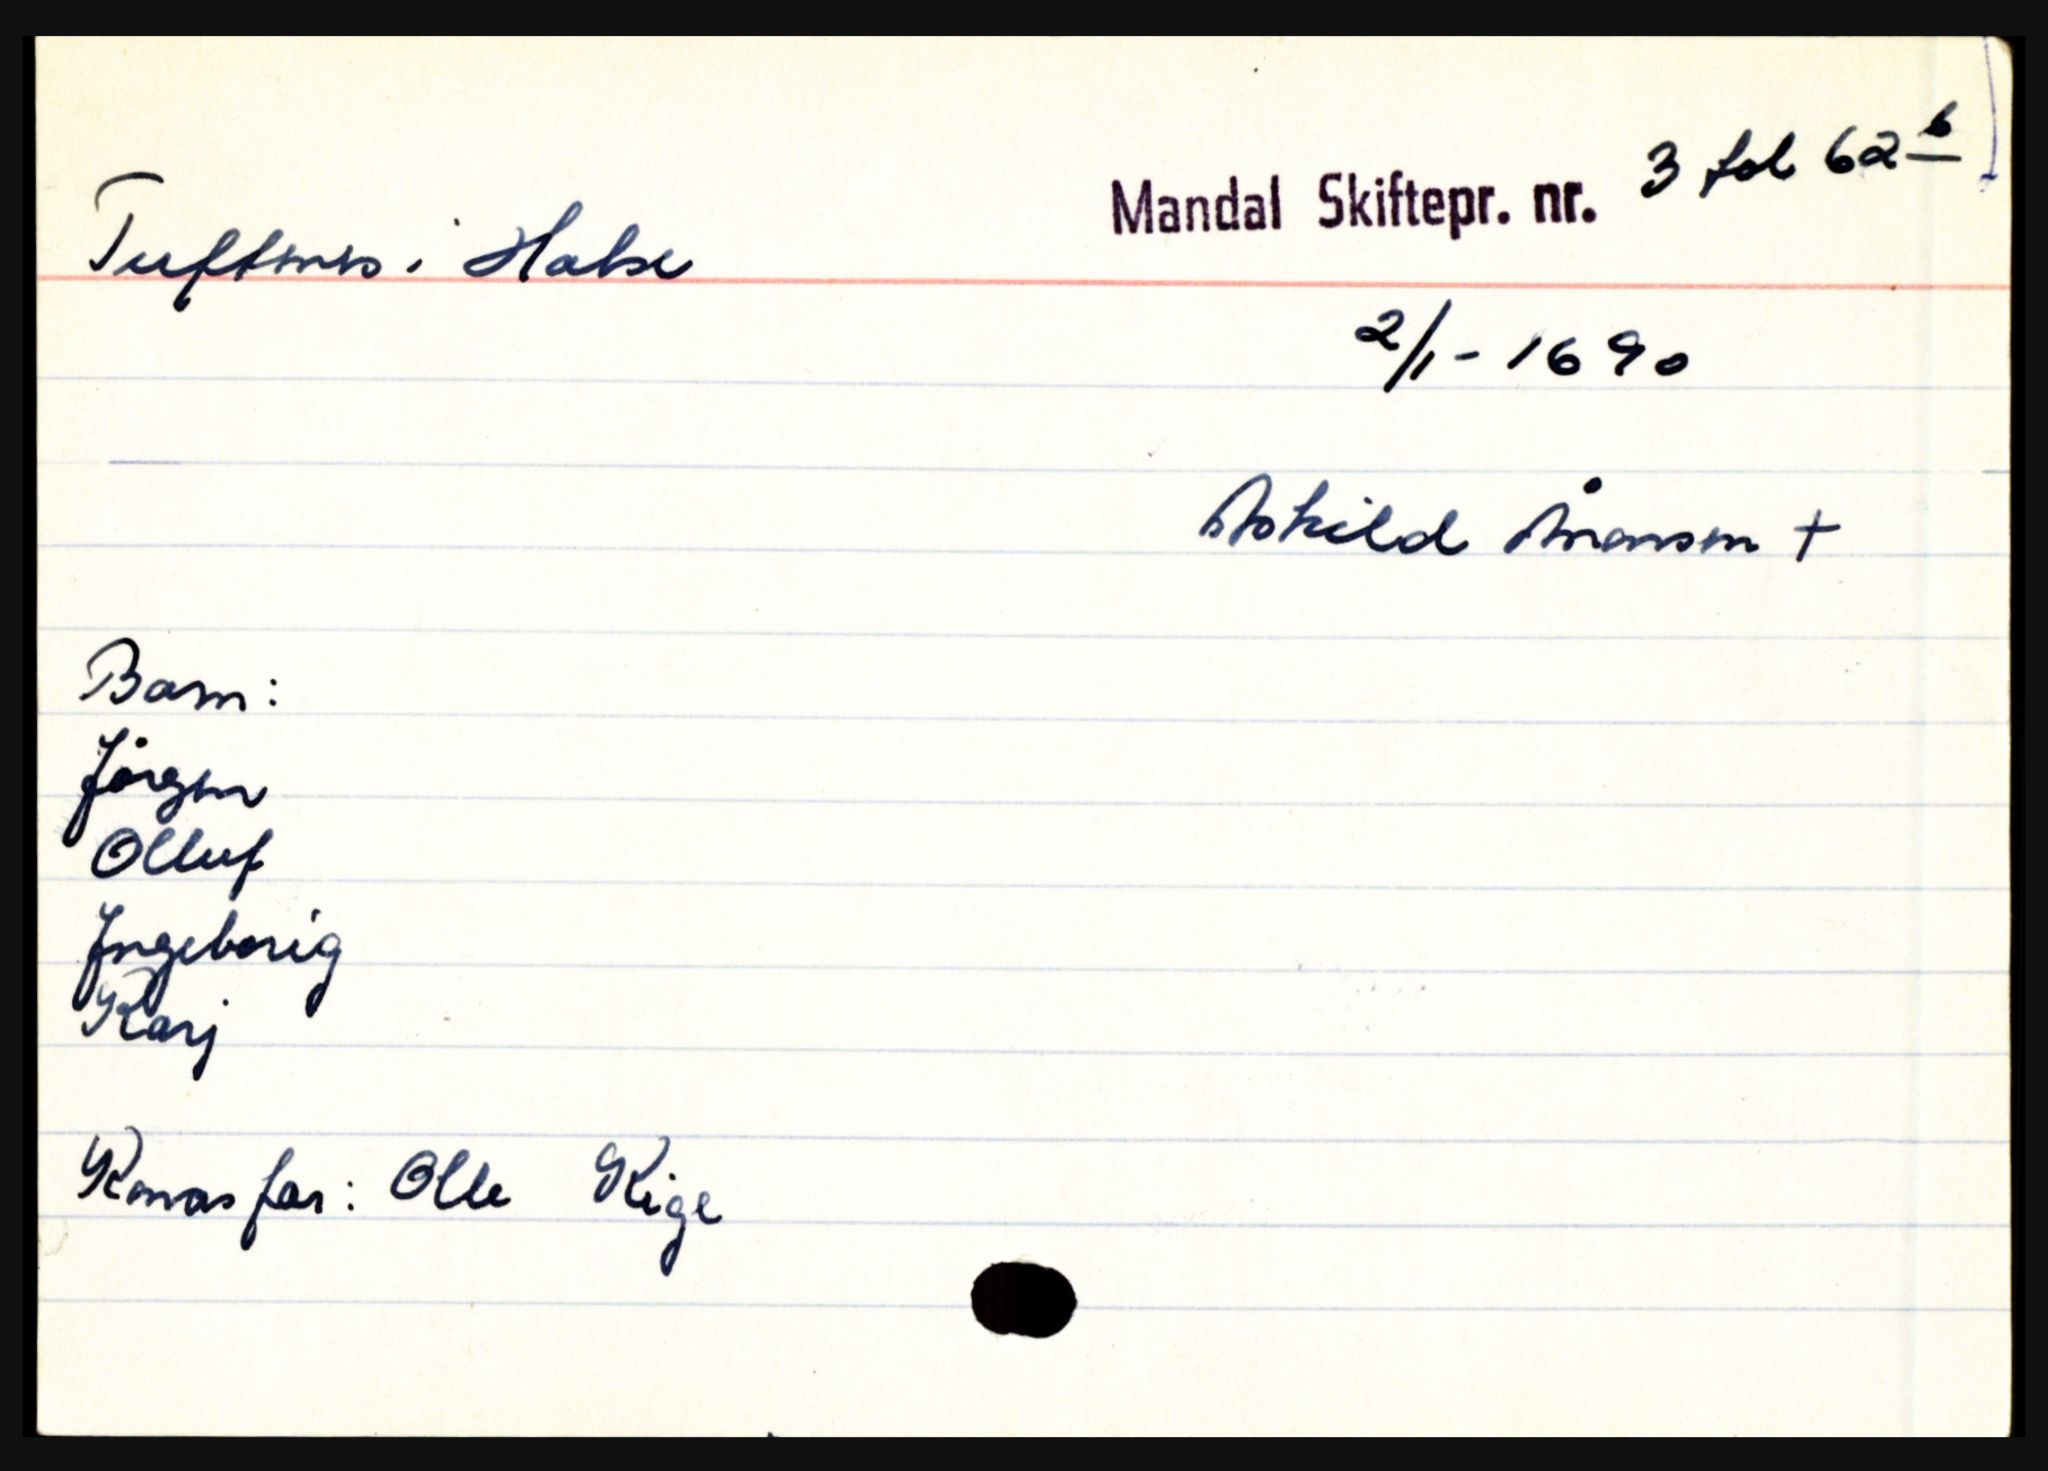 Mandal Skiftepr. nr. 3 fol 62 b
Tuftenes i Halse
2/1 - 1690
Askild Ånonsen +
Barn:
Jörgen
Olluf
Ingeborig
Karj
Konas far: Olle Kige